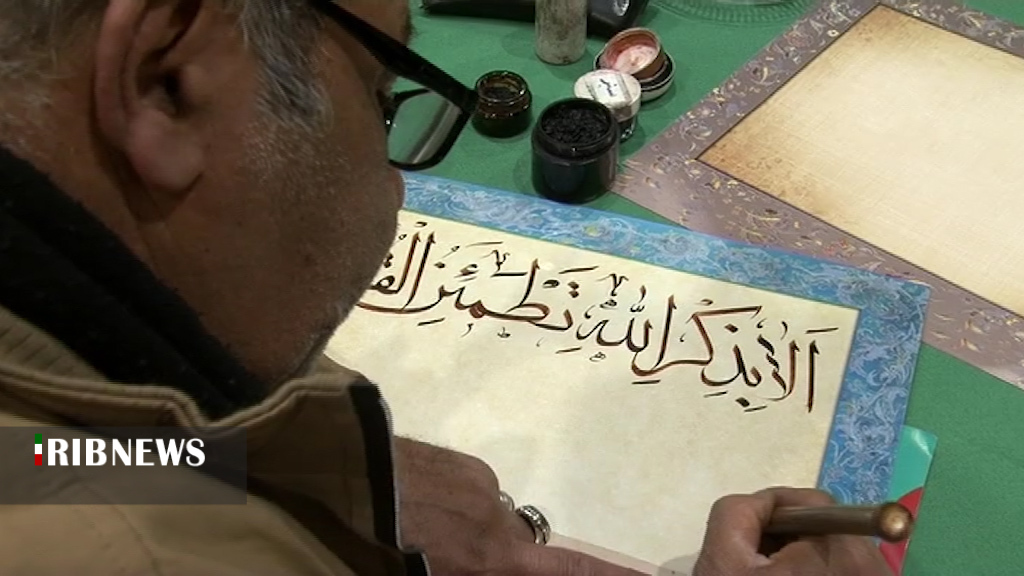 الا بذكر الله تطمئن
IRIBNEWS